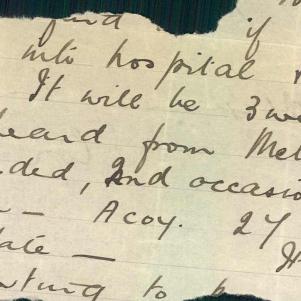 if
into hospital
It will be 3
heard from Mel
ded, and occasio
— Acoy. 27
ate — It
to